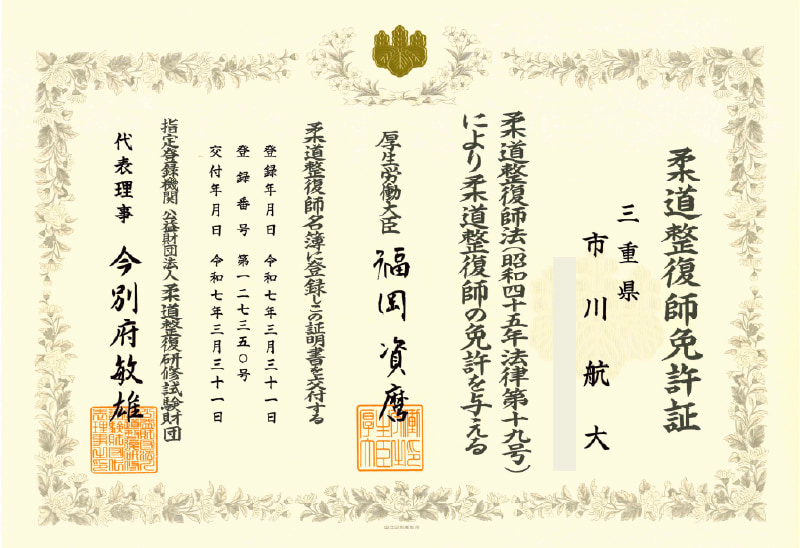 柔道整復師免許証
三重県
市川航大
柔道整復師法（昭和四十五年法律第十九号）
により柔道整復師の免許を与える
厚生労働大臣 福岡資麿
柔道整復師名簿に登録しこの証明書を交付する
登録年月日 令和七年三月三十一日
登録番号 第一二七三五〇号
交付年月日 令和七年三月三十一日
指定登録機関 公益財団法人柔道整復研修試験財団
代表理事 今別府敏雄